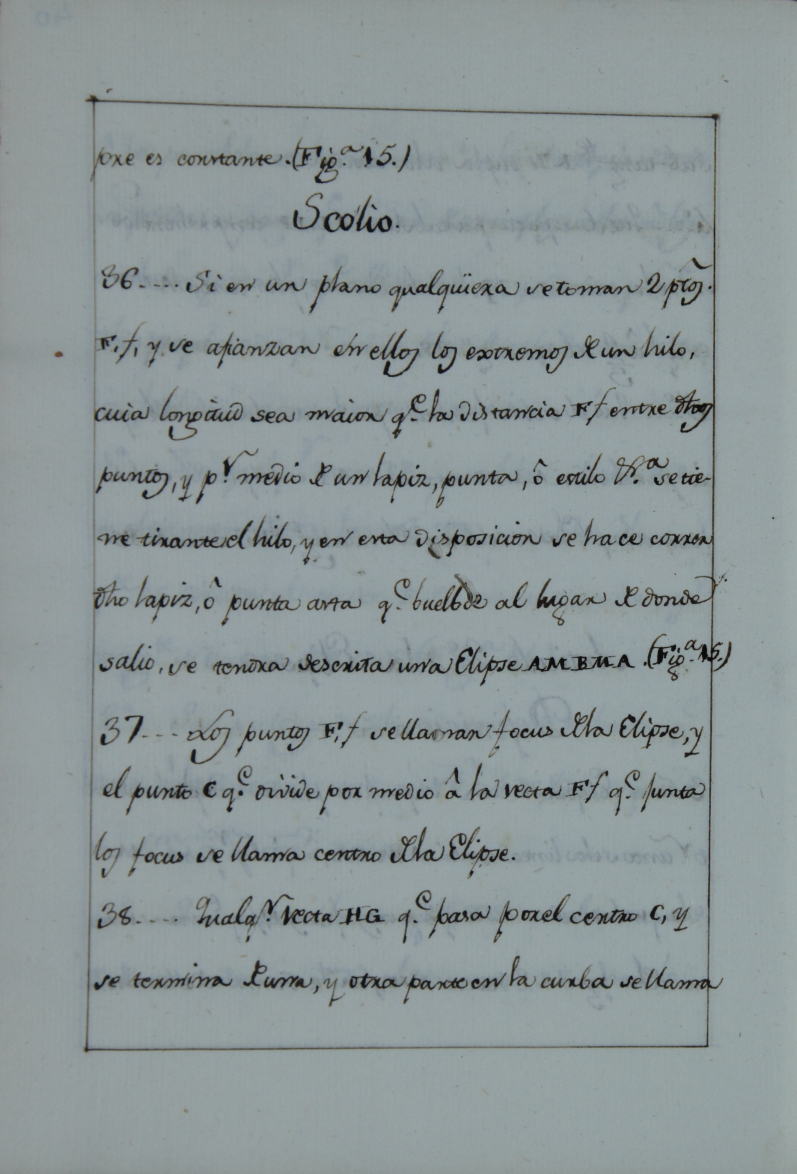 pre es constante. (Fig.ª 15.)
Scolio.
36.... Si en un plano qualqüiera se toman 2 ptõs.
F, f, y se afianzan en ellos los extremos de un hilo,
cuia longitud sea maior q.e la distancia Ff entre dhos
puntos, y p.r medio de un lapiz, punta, ô estilo &.ª se tie-
ne tirante el hilo, y en esta disposicion se hace correr
dho lapiz, ô punta asta q.e buelbe al lugar de donde
salio, se tendra descrita una Elipse AMBMA. (Fig.ª 15.)
37... Los puntos F, f se llaman focus de la Elipse, y
el punto C q.e divide por medio â la recta Ff q.e junta
los focus se llama centro de la Elipse.
38.... Qualq.r recta HG q.e pasa por el centro C, y
se termina de una, y otra parte en la curba se llama